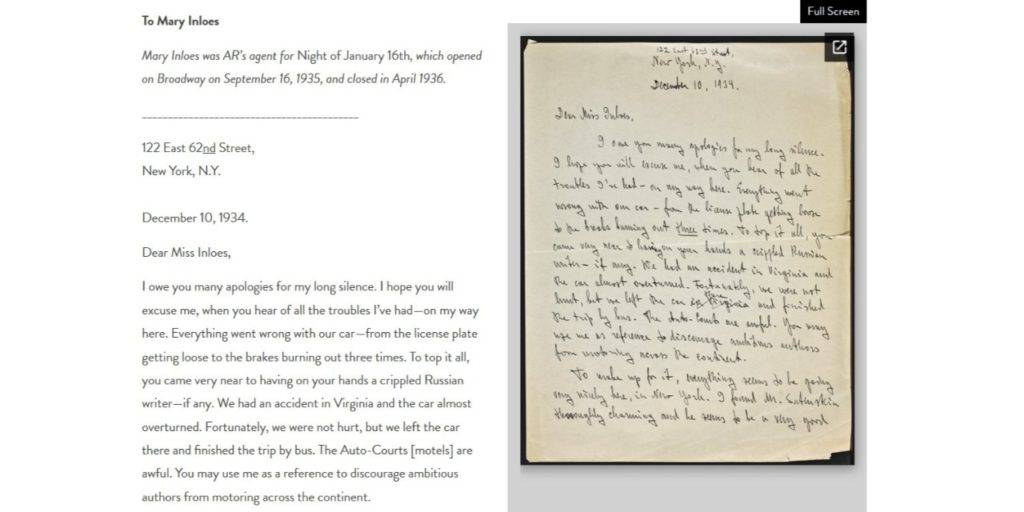 To Mary Inloes
Mary Inloes was AR's agent for Night of January 16th, which opened
on Broadway on September 16, 1935, and closed in April 1936.
________________________________________
122 East 62nd Street,
New York, N.Y.
December 10, 1934.
Dear Miss Inloes,
I owe you many apologies for my long silence. I hope you will
excuse me, when you hear of all the troubles I've had—on my way
here. Everything went wrong with our car—from the license plate
getting loose to the brakes burning out three times. To top it all,
you came very near to having on your hands a crippled Russian
writer—if any. We had an accident in Virginia and the car almost
overturned. Fortunately, we were not hurt, but we left the car
there and finished the trip by bus. The Auto-Courts [motels] are
awful. You may use me as a reference to discourage ambitious
authors from motoring across the continent.
Full Screen
122 East 62nd Street,
New York, N.Y.
December 10, 1934.
Dear Miss Inloes,
I owe you many apologies for my long silence.
I hope you will excuse me, when you hear of all the
troubles I've had – on my way here. Everything went
wrong with our car – from the license plate getting loose
to the breaks burning out three times. To top it all, you
came very near to having on your hands a crippled Russian
writer – if any. We had an accident in Virginia and
the car almost overturned. Fortunately, we were not
hurt, but we left the car there and finished
the trip by bus. The Auto-Courts are awful. You may
use me as reference to discourage ambitious authors
from motoring across the continent.
To make up for it, everything seems to be going
very nicely here, in New York. I found Mr.
thoroughly charming and he seems to be a very good